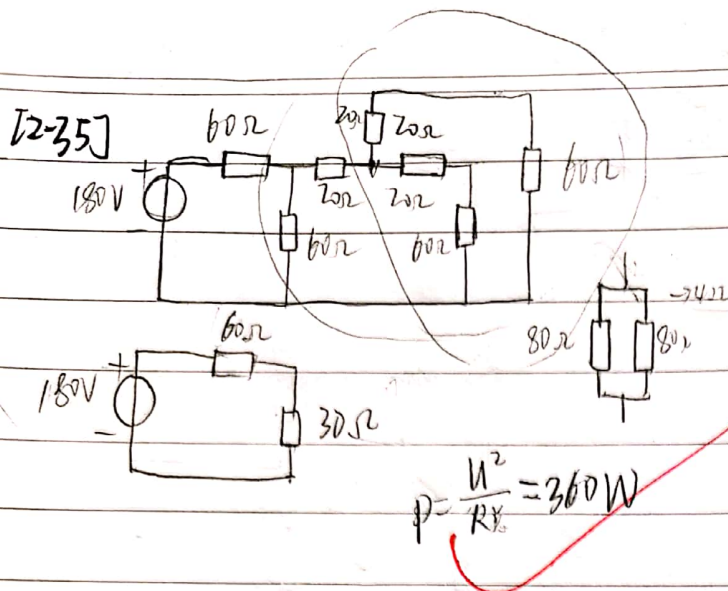 [2-35]
60Ω
20Ω
20Ω
+
180V
20Ω
20Ω
60Ω
60Ω
60Ω
80Ω
80Ω
60Ω
+
180V
-
30Ω
P=U²/R=360W